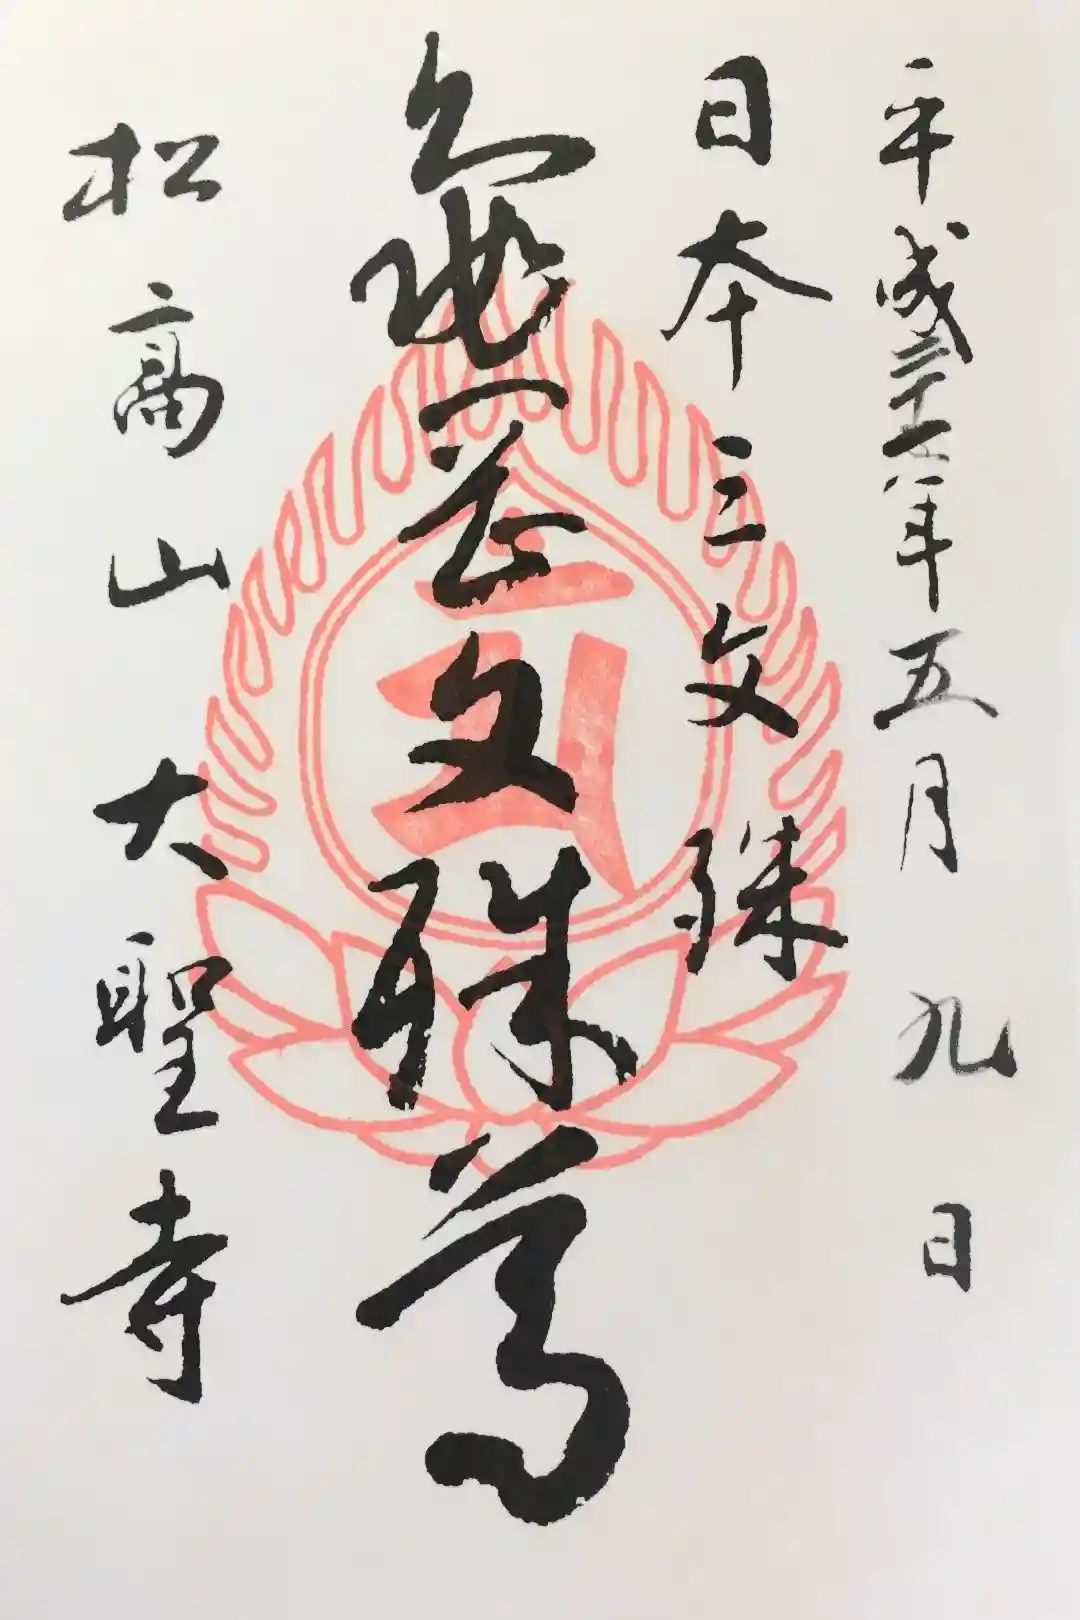 平成三十年五月九日
日本三文殊
亀岡文殊尊
松高山大聖寺